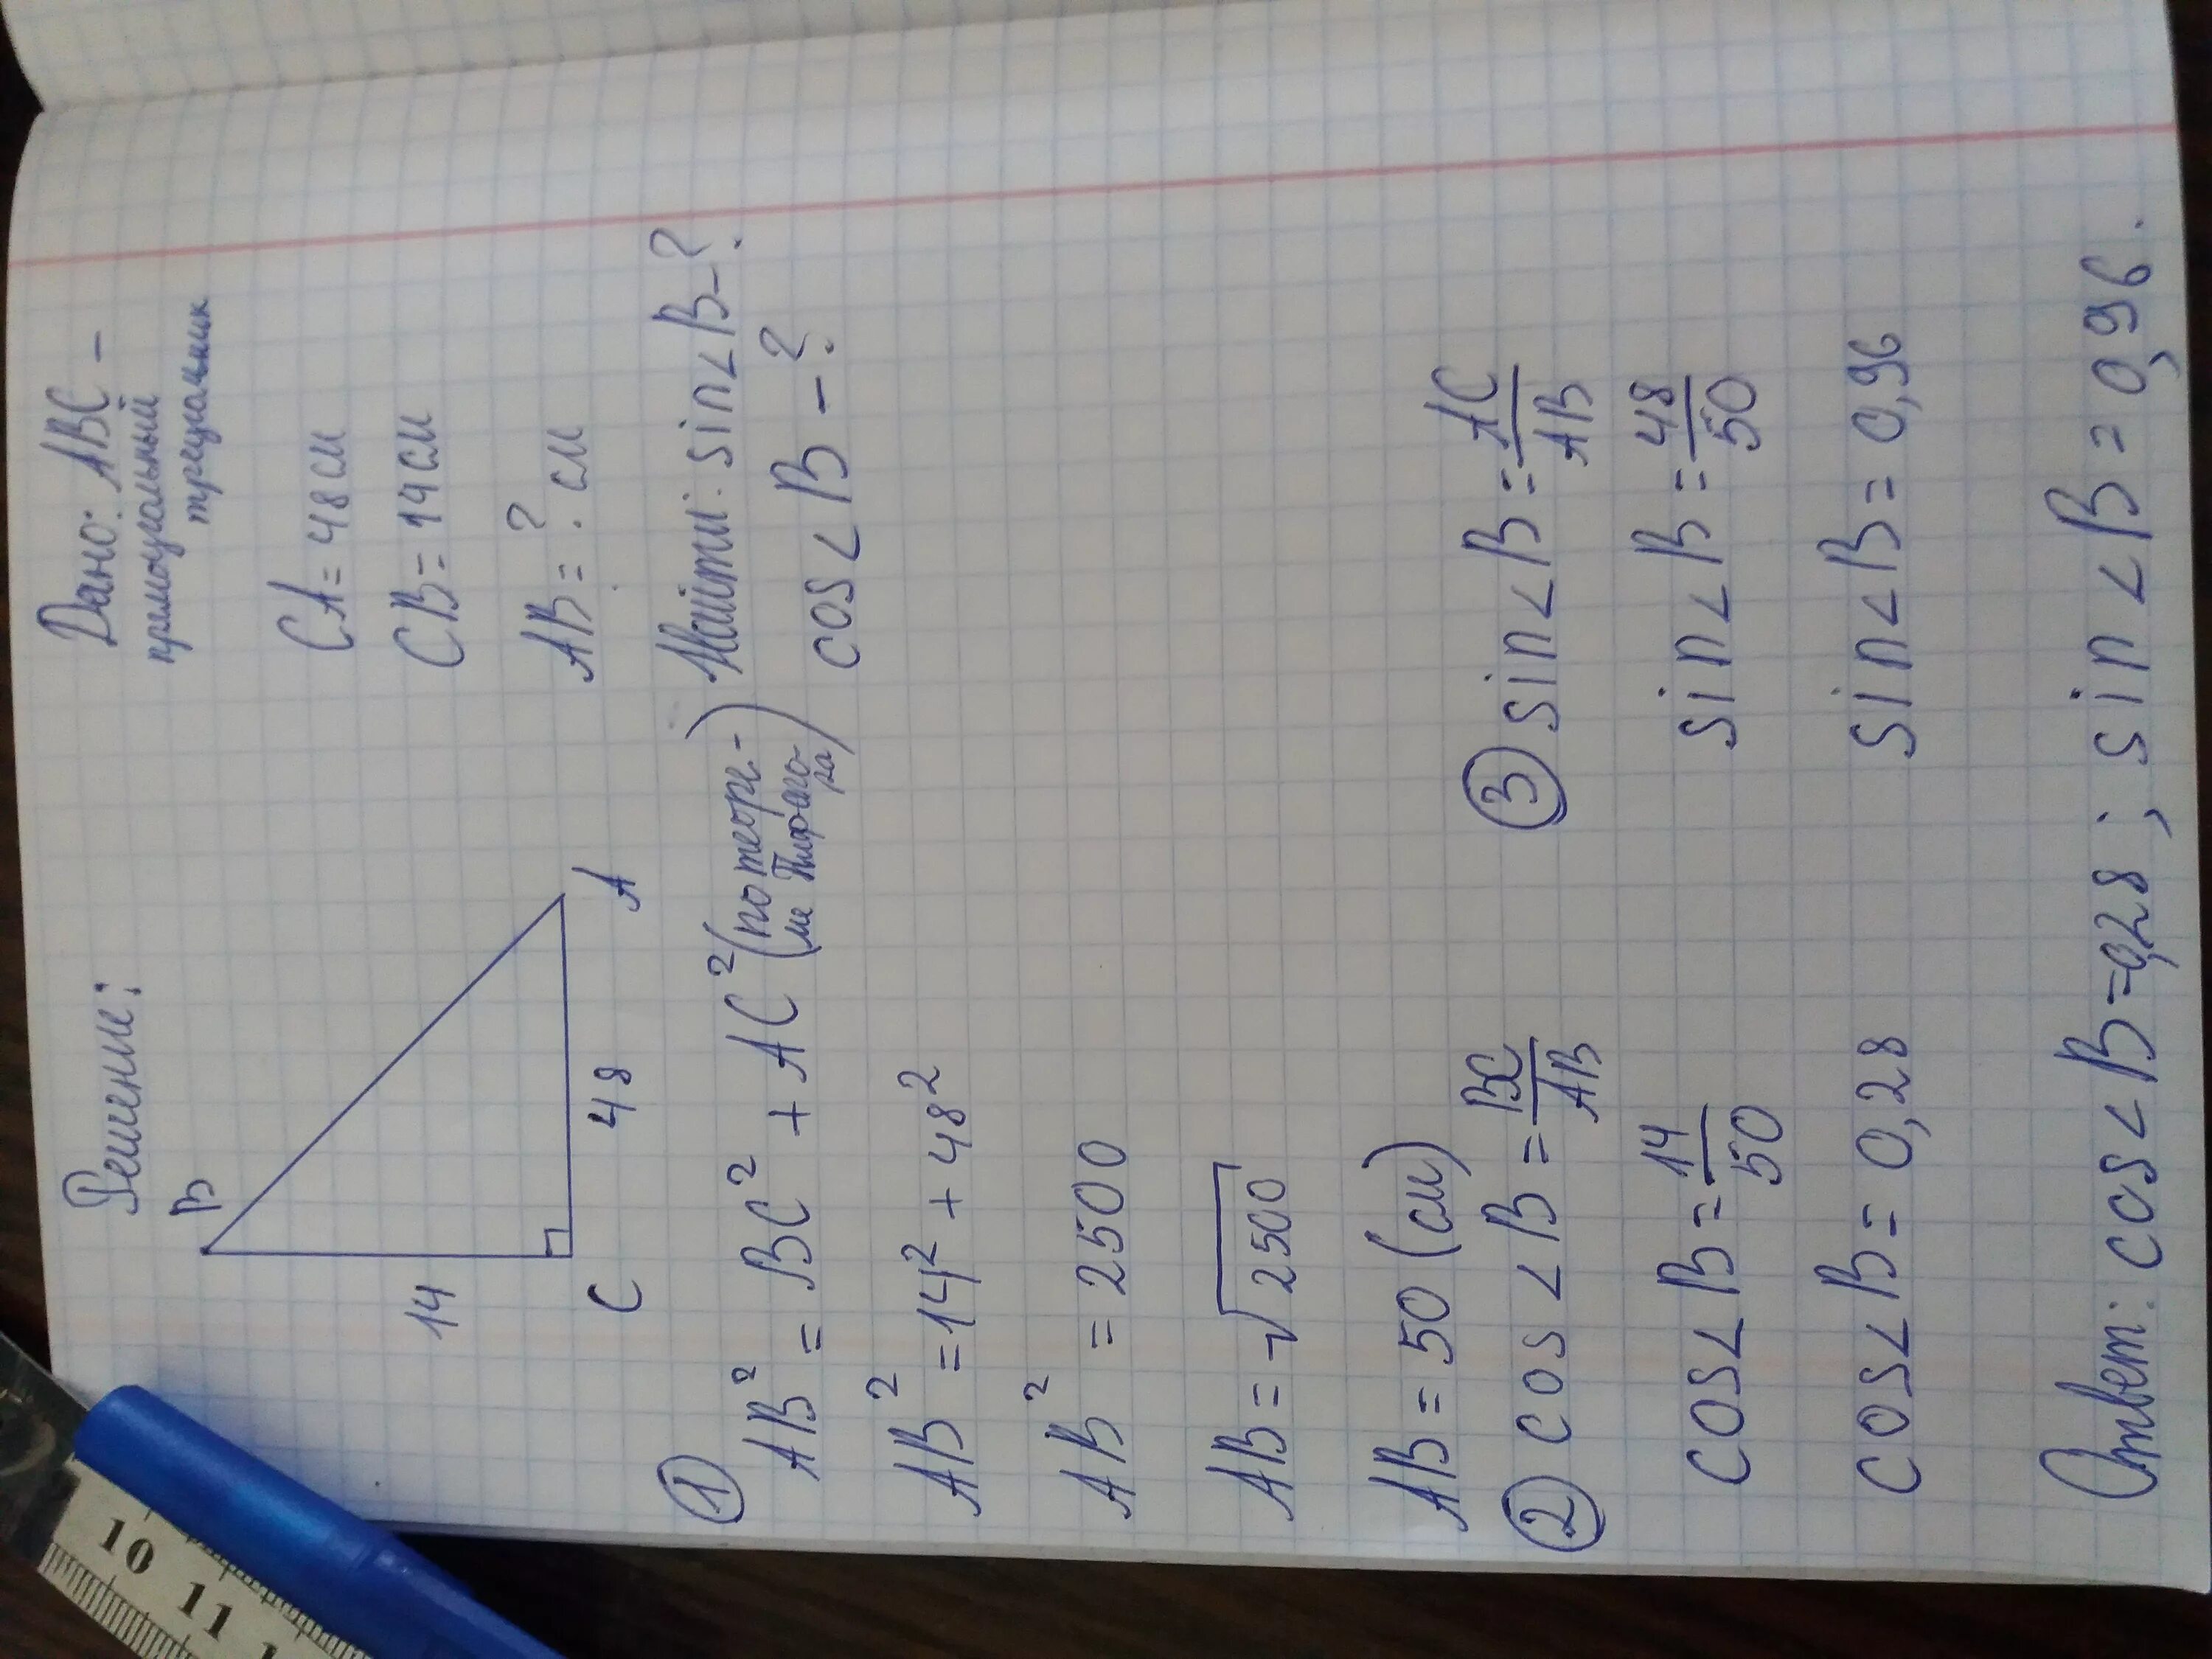 Решение:
B
14
C
48
A
Дано: ABC –
прямоугольный
треугольник
CA = 48 см
CB = 14 см
AB = ? см
Найти: sin∠B – ?
cos∠B – ?
① AB² = BC² + AC² (по теоре-
ме Пифаго-
ра)
AB² = 14² + 48²
AB² = 2500
AB = √2500
AB = 50 (см)
② cos∠B = BC/AB
cos∠B = 14/50
cos∠B = 0,28
③ sin∠B = AC/AB
sin∠B = 48/50
sin∠B = 0,96
Ответ: cos∠B = 0,28 ; sin∠B = 0,96.
10
11
1